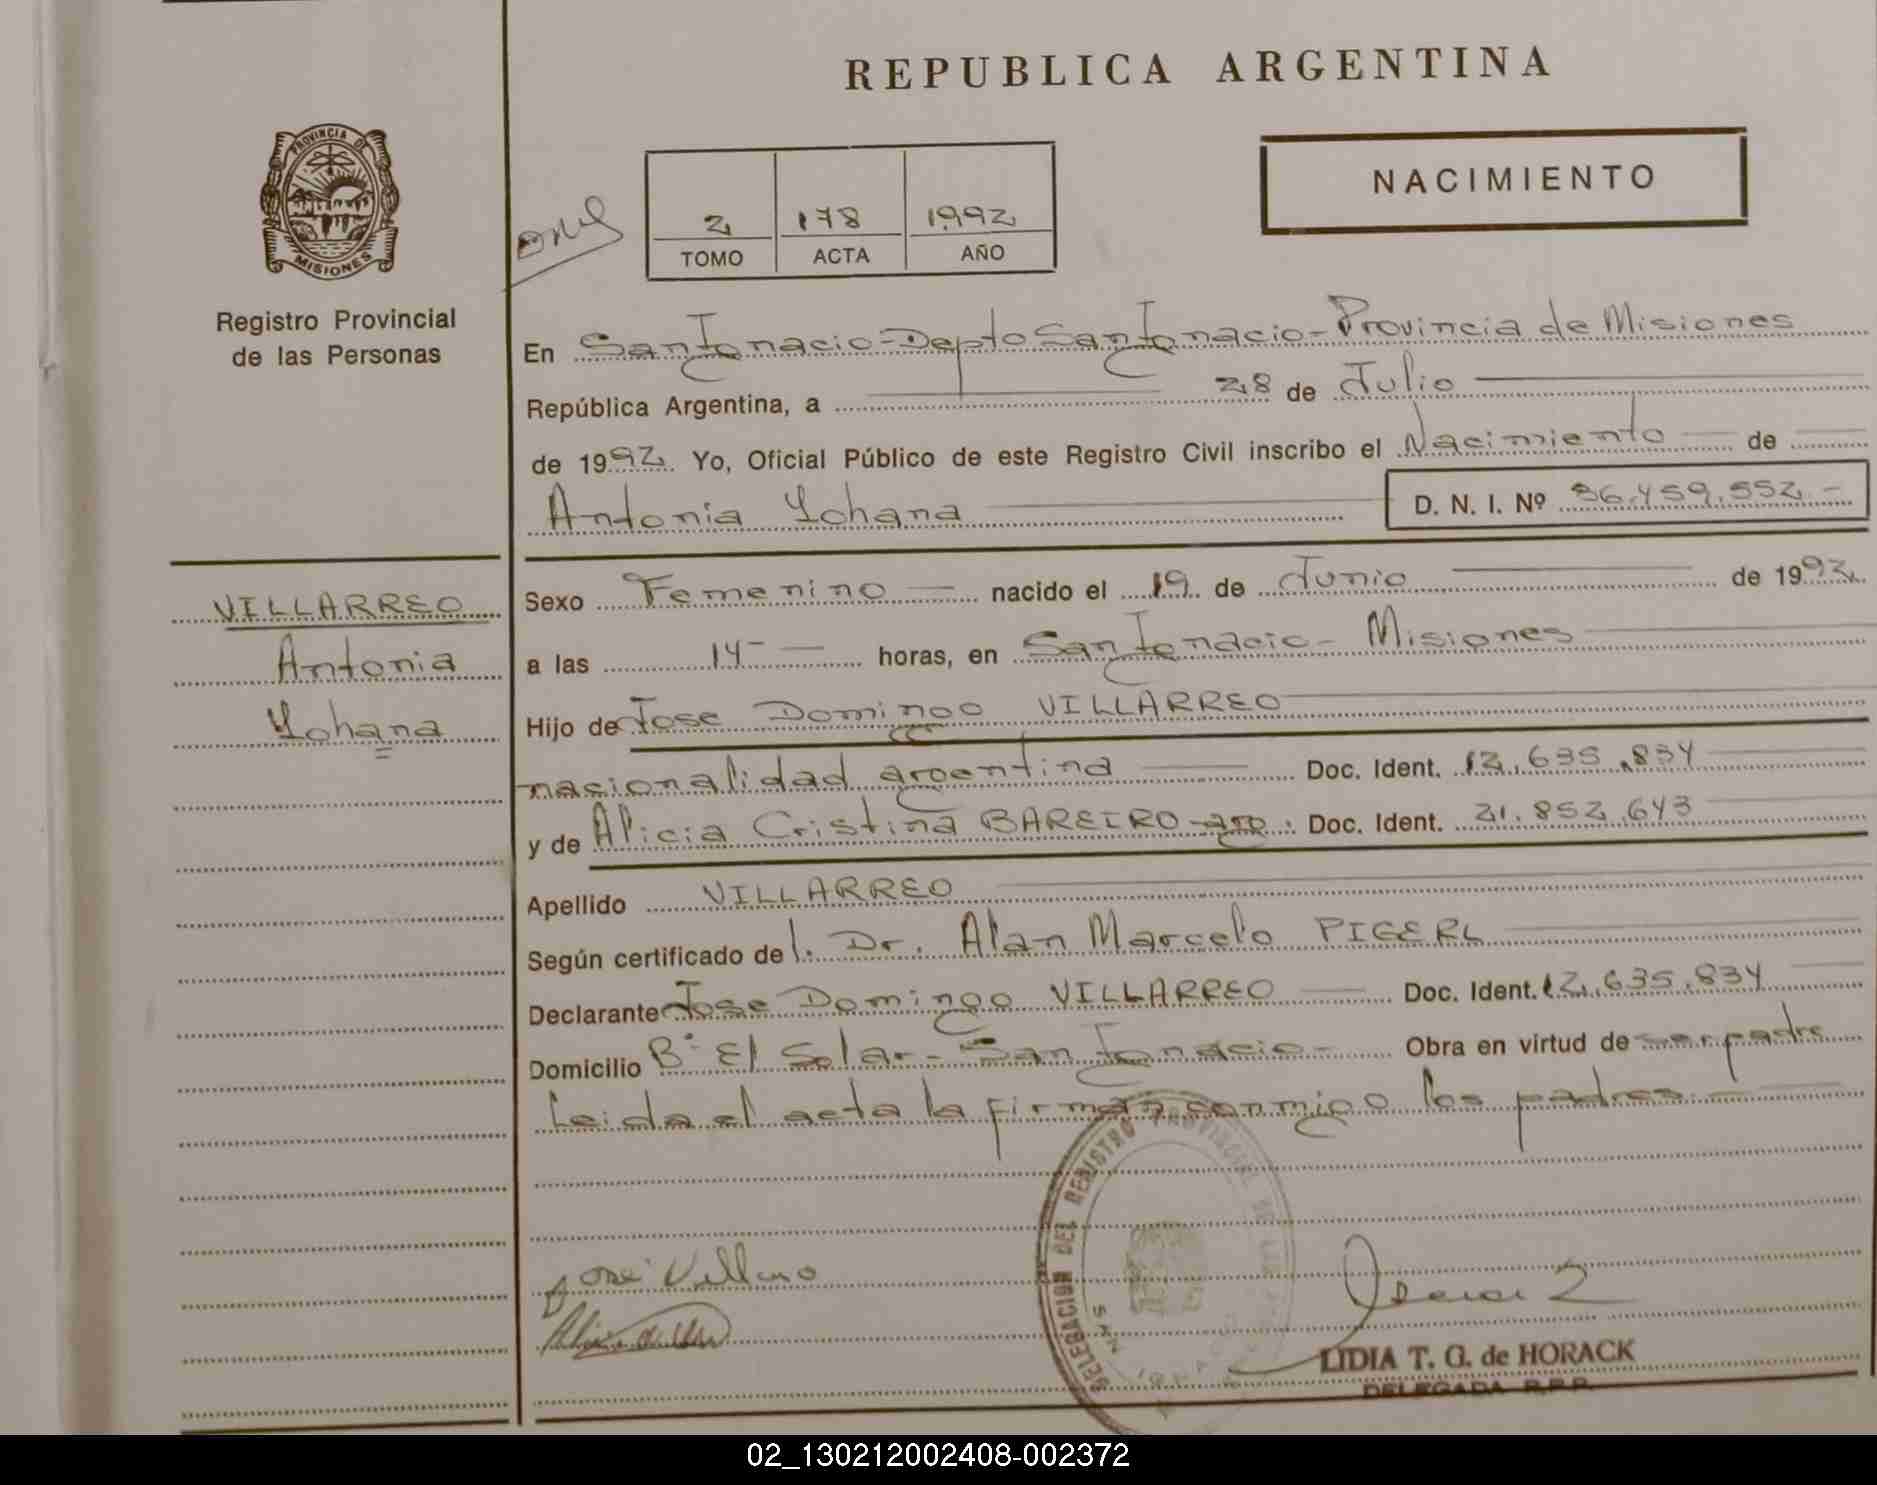 REPUBLICA ARGENTINA
PROVINCIA DE
MISIONES
Registro Provincial
de las Personas
2 178 1992
TOMO ACTA AÑO
NACIMIENTO
En San Ignacio - Depto San Ignacio - Provincia de Misiones
República Argentina, a 28 de Julio
de 1992 Yo, Oficial Público de este Registro Civil inscribo el Nacimiento de
Antonia Yohana D. N. I. Nº 36.459.552 -
VILLARREO
Antonia
Yohana
Sexo Femenino nacido el 19 de Junio de 1992
a las 14 - horas, en San Ignacio - Misiones
Hijo de Jose Domingo VILLARREO
nacionalidad argentina Doc. Ident. 12.635.834
y de Alicia Cristina BAREIRO - arg. Doc. Ident. 21.852.643
Apellido VILLARREO
Según certificado del. Dr. Alan Marcelo PIGERL
Declarante Jose Domingo VILLARREO Doc. Ident. 12.635.834
Domicilio Bº El Solar - San Ignacio - Obra en virtud de ser padre
Leida el acta la firman conmigo los padres. -
DELEGACION DEL REGISTRO PROVINCIAL DE LAS
SAN IGNACIO
José Villarreo
LIDIA T. G. de HORACK
DELEGADA R.P.P.
02_130212002408-002372